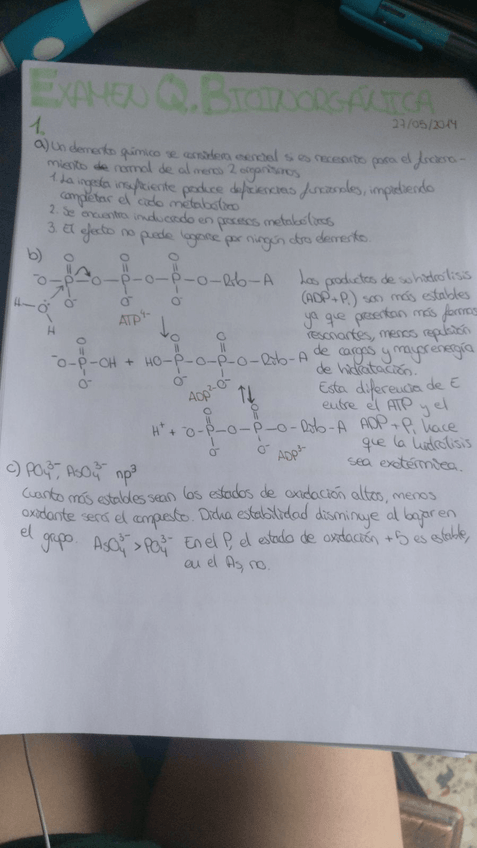 EXAMEN Q. BIOINORGÁNICA
27/05/2014
1.
a) Un elemento químico se considera esencial si es necesario para el funcio-
namiento de normal de al menos 2 organismos
1. La ingesta insuficiente produce deficiencias funcionales, impidiendo
completar el ciclo metabólico
2. Se encuentra involucrado en procesos metabólicos
3. El efecto no puede lograrse por ningún otro elemento.
b)
O O O
⁻O-P-O-P-O-P-O-Rib-A
O⁻ O⁻ O⁻
H-O
H
ATP⁴⁻
Los productos de su hidrólisis
(ADP+Pi) son más estables
ya que presentan más formas
resonantes, menos repulsión
de cargas y mayor energía
de hidratación.
Esta diferencia de E
entre el ATP y el
ADP + Pi hace
que la hidrólisis
sea exotérmica.
O O O
⁻O-P-OH + HO-P-O-P-O-Rib-A
O⁻ O⁻ O⁻
ADP²⁻
O O
H⁺ + ⁻O-P-O-P-O-Rib-A
O⁻ O⁻
ADP³⁻
c) PO₄³⁻, AsO₄³⁻ np³
Cuanto más estables sean los estados de oxidación altos, menos
oxidante será el compuesto. Dicha estabilidad disminuye al bajar en
el grupo. AsO₄³⁻ > PO₄³⁻ En el P, el estado de oxidación +5 es estable,
en el As, no.